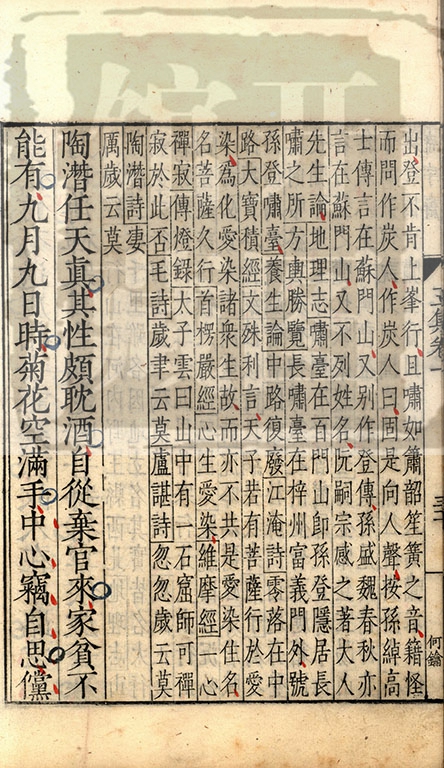 出登不肯上峯行且嘯如簫韶笙簧之音籍怪
而問作炭人作炭人曰固是向人聲按孫綽高
士傳言在蘇門山又别作登傳孫盛魏春秋亦
言在蘇門山又不列姓名阮嗣宗感之著大人
先生論地理志嘯臺在百門山即孫登隱居長
嘯之所方輿勝覽長嘯臺在梓州富義門外號
孫登嘯臺養生論中路復廢江淹詩零落在中
路大寶積經文殊利言天子若有菩薩行於愛
染為化愛染諸衆生故而亦不共是愛染住名
名菩薩久行首楞嚴經心生愛染維摩經一心
禪寂傳燈録太子雲曰山中有一石窟師可禪
寂於此否毛詩歲聿云莫盧諶詩忽忽歲云莫
陶潛詩妻
厲歲云莫
陶潛任天真其性頗耽酒自從棄官來家貧不
能有九月九日時菊花空滿手中心竊自思儻
何鑰